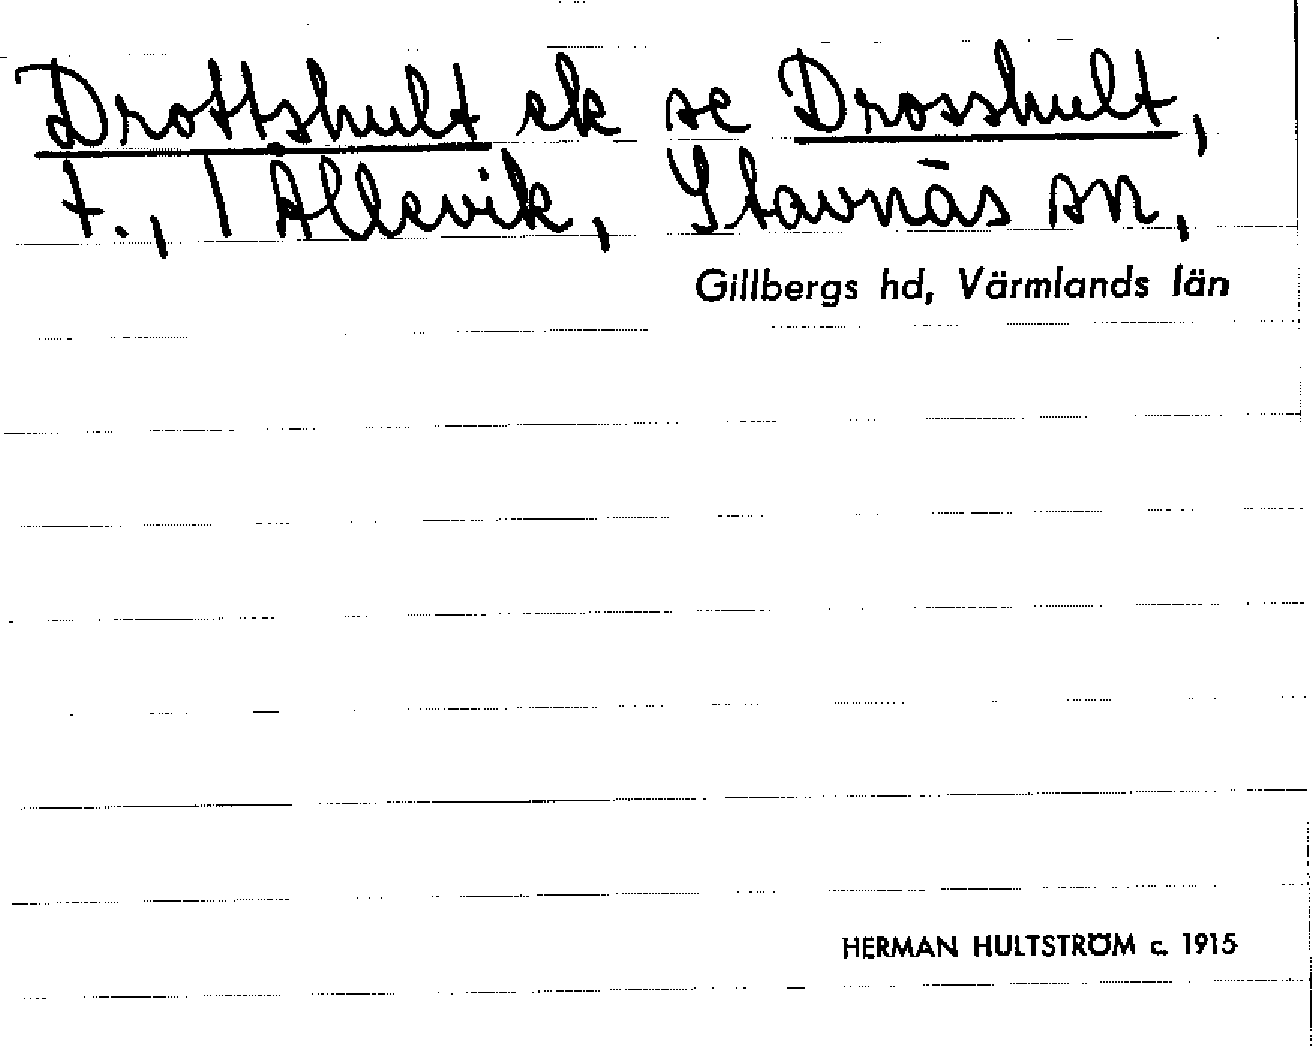 Drottshult ek se Drosshult,
t., 1 Ållevik, Stavnäs sn,
Gillbergs hd, Värmlands län
HERMAN HULTSTRÖM c. 1915